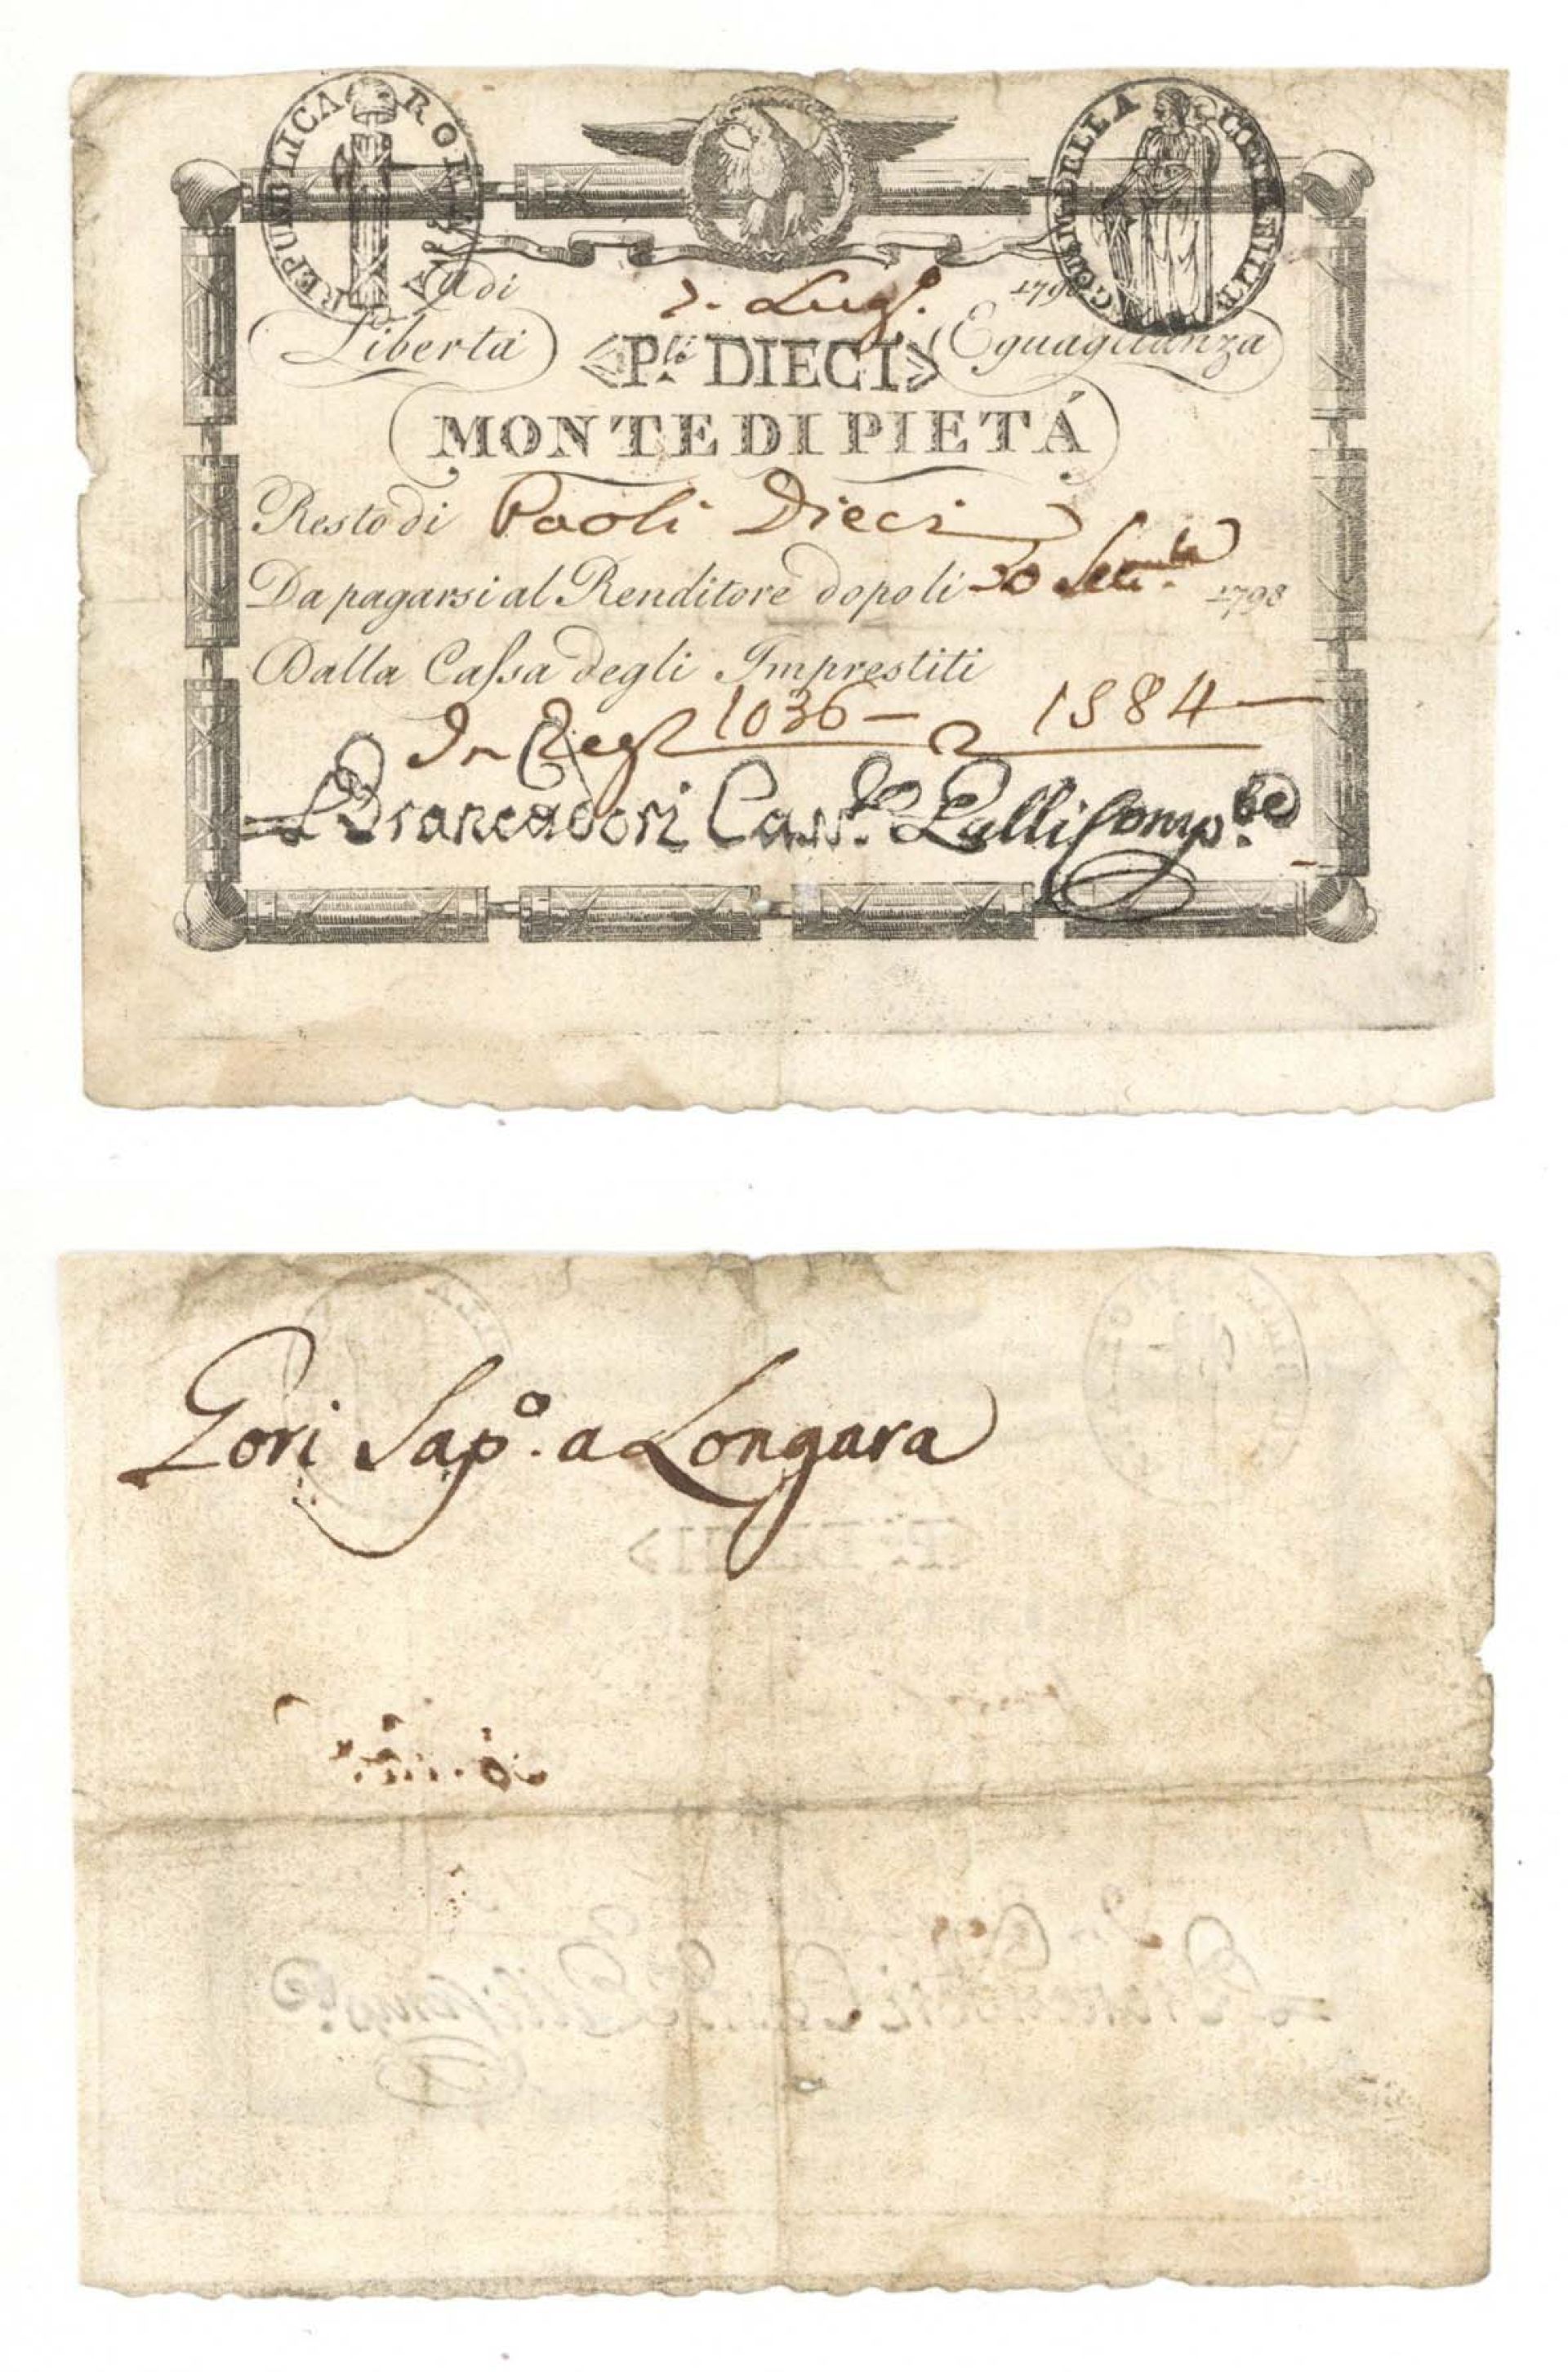 REPUBLICA ROMANA
COM. DELLA CONTABIL.
Adi 2. Lugl.° 1798
Libertà <P.li DIECI> Eguaglianza
MONTE DI PIETÁ
Resto di Paoli Dieci
Da pagarsi al Renditore dopo li 30 1798
Dalla Cassa degli Imprestiti
In Reg 1036 - 1584
Brancadori Cass.e Lulli Comp.be
Gori Sap.° a Longara